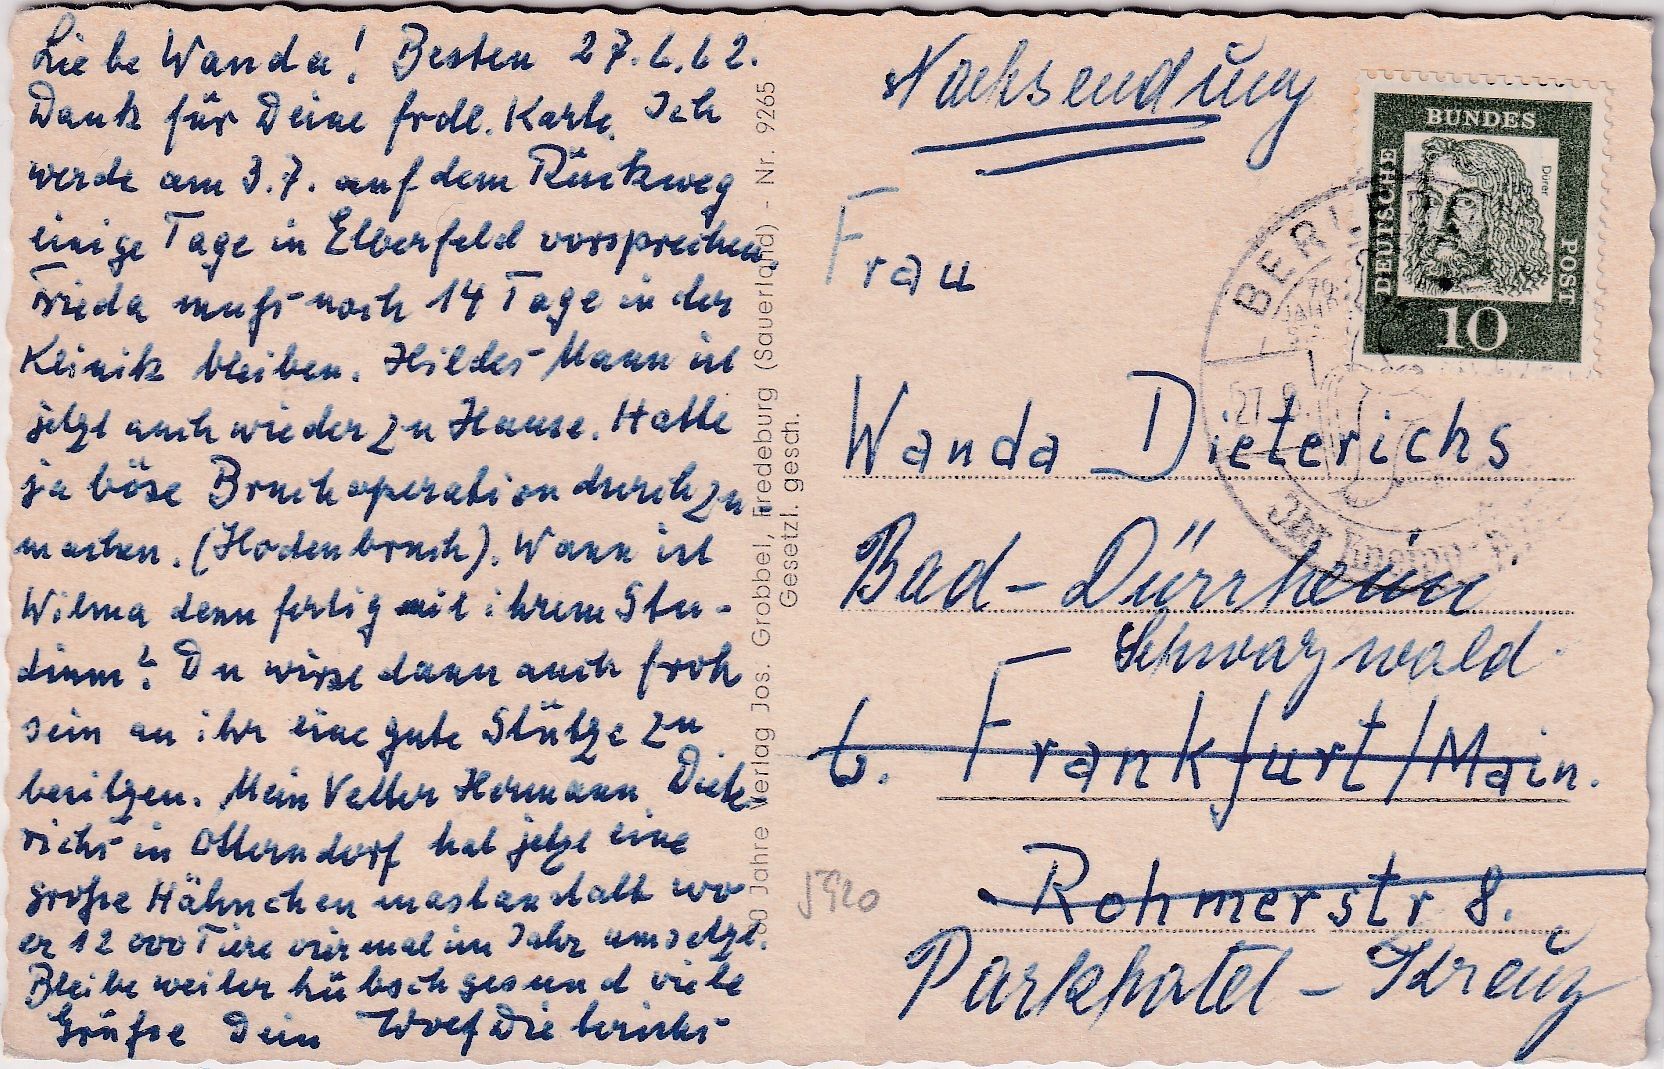 Liebe Wanda! Besten 27.6.62.
Dank für Deine frdl. Karte. Ich
werde am 3.7. auf dem Rückweg
einige Tage in Elberfeld vorsprechen.
Frieda muß noch 14 Tage in der
Klinik bleiben. Hildes Mann ist
jetzt auch wieder zu Hause. Hatte
ja böse Bruchoperation durch zu
machen. (Hodenbruch). Wann ist
Wilma denn fertig mit ihrem Stu-
dium? Du wirst dann auch froh
sein an ihr eine gute Stütze zu
besitzen. Mein Vetter Hermann Diete
richs in Otterndorf hat jetzt eine
große Hähnchenmastanstalt wo
er 12000 Tiere vier mal im Jahr umsetzt.
Bleibe weiter hübsch gesund viele
Grüße Dein Wolf Dieterichs
50 Jahre Verlag Jos. Grobbel, Fredeburg (Sauerland) - Nr. 9265
Gesetzl. gesch.
Nachsendung
Frau
Wanda Dieterichs
Bad-Dürrheim
Schwarzwald
6. Frankfurt/Main.
Rohmerstr 8.
Parkhotel-Kreuz
5920
DEUTSCHE BUNDES POST
Dürer
10
BERL
27.6.